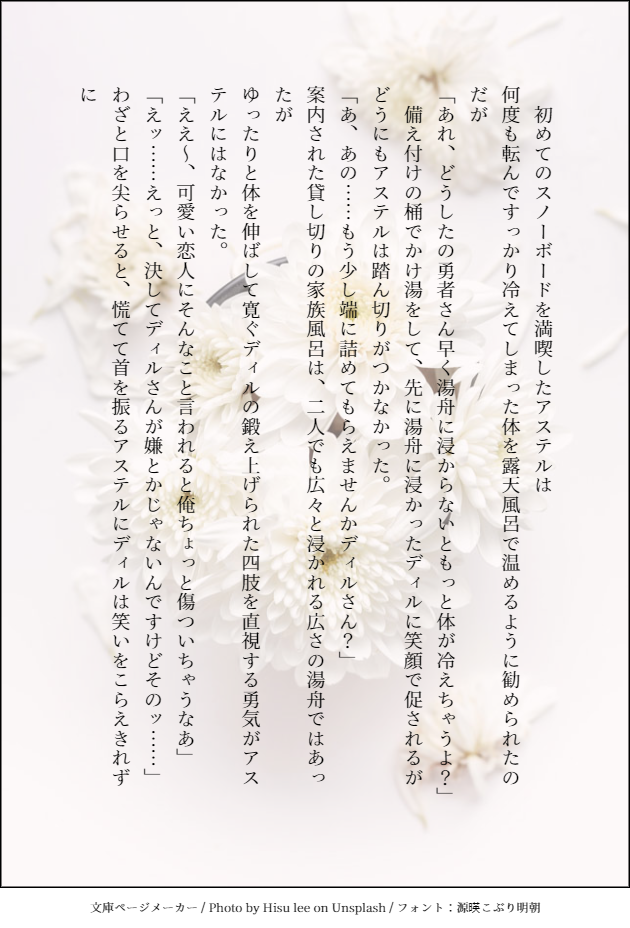 初めてのスノーボードを満喫したアステルは
何度も転んですっかり冷えてしまった体を露天風呂で温めるように勧められたの
だが
「あれ、どうしたの勇者さん早く湯舟に浸からないともっと体が冷えちゃうよ？」
備え付けの桶でかけ湯をして、先に湯舟に浸かったディルに笑顔で促されるが
どうにもアステルは踏ん切りがつかなかった。
「あ、あの……もう少し端に詰めてもらえませんかディルさん？」
案内された貸し切りの家族風呂は、二人でも広々と浸かれる広さの湯舟ではあっ
たが
ゆったりと体を伸ばして寛ぐディルの鍛え上げられた四肢を直視する勇気がアス
テルにはなかった。
「ええ～、可愛い恋人にそんなこと言われると俺ちょっと傷ついちゃうなあ」
「えッ……えっと、決してディルさんが嫌とかじゃないんですけどそのッ……」
わざと口を尖らせると、慌てて首を振るアステルにディルは笑いをこらえきれず
に
文庫ページメーカー / Photo by Hisu lee on Unsplash / フォント：源暎こぶり明朝